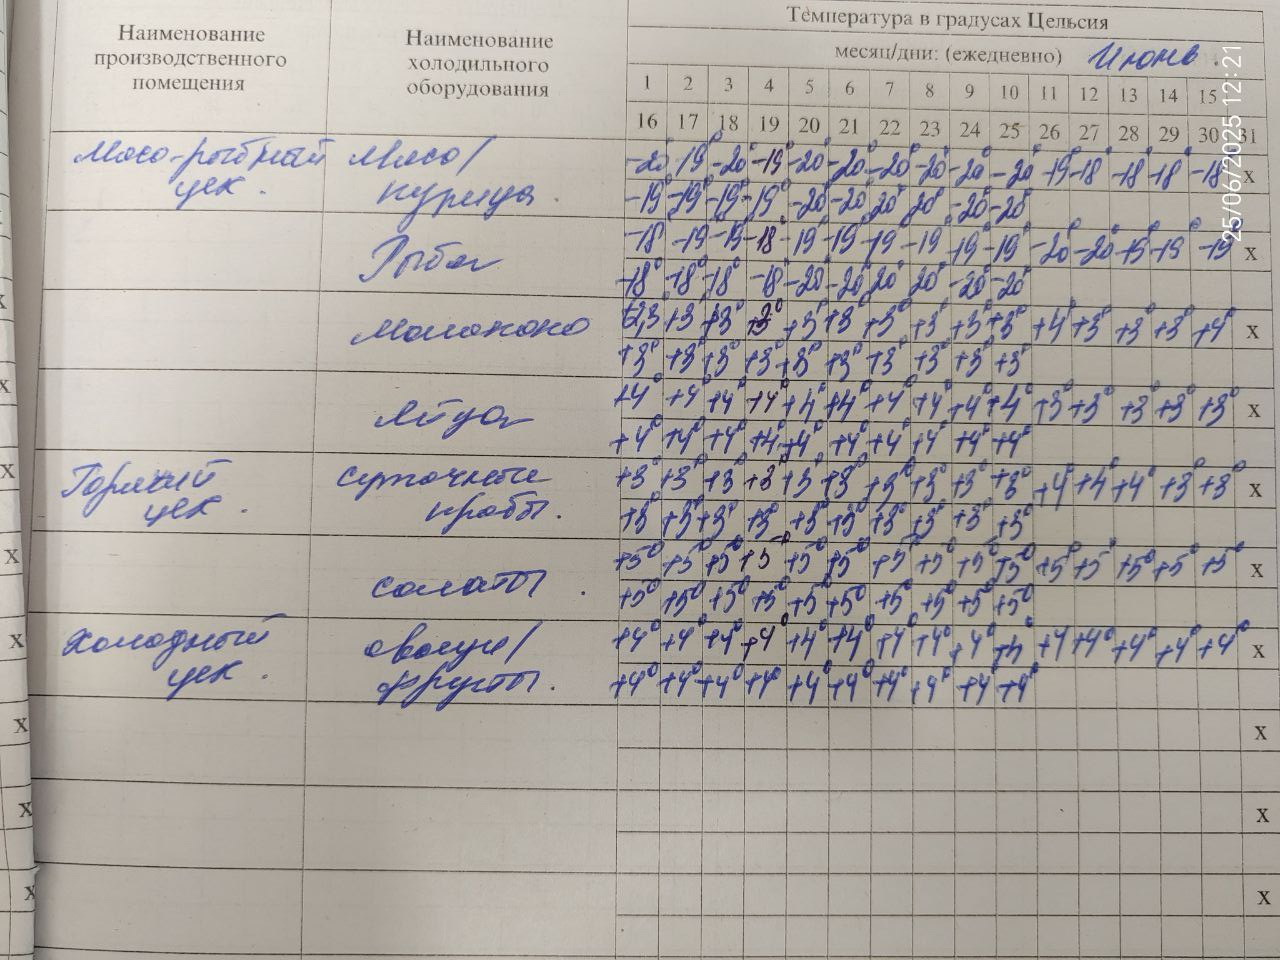 Температура в градусах Цельсия
Наименование производственного помещения
Наименование холодильного оборудования
месяц/дни: (ежедневно) Июнь.
1 2 3 4 5 6 7 8 9 10 11 12 13 14 15
16 17 18 19 20 21 22 23 24 25 26 27 28 29 30 31
Мясо-рыбный цех. Мясо/ -20° -19° -20° -19° -20° -20° -20° -20° -20° -20° -19 -18 -18 -18 -18 х
курица. -19° -19° -19° -19° -20° -20° 20° 20° -20° -20°
Рыба -18 -19 -19 -18° -19° -19° -19° -19 19° -19° -20° -20° -19 -19 -19 х
-18° -18° -18° -18 -20° -20° 20° 20° -20° -20°
Молоконо +3 +3° +3° +3° +3° +3° +3° +3° +3° +4° +3° +3° +3° +4° х
+3° +3° +3° +3° +3° +3° +3° +3° +3° +3°
Яйца +4° +4° +4° +4° +4° +4° +4° +4° +4° +4° +3° +3° +3° +3° +3° х
+4° +4° +4° +4° +4° +4° +4° +4° +4° +4°
Горячий цех. суточные +3° +3° +3° +3° +3° +3° +3° +3° +3° +3° +4° +4° +4° +3° +3° х
пробы. +3° +3° +3° +3° +3° +3° +3° +3° +3° +3°
салаты. +5° +5° +5° +5° +5° +5° +5° +5° +5° +5° +5° +5° +5° +5° +5° х
+5° +5° +5° +5° +5° +5° +5° +5° +5° +5°
Холодный цех. овощи/ +4° +4° +4° +4° +4° +4° +4° +4° +4° +4° +4° +4° +4° +4° х
фрукты. +4° +4° +4° +4° +4° +4° +4° +4° +4° +4°
х
х
х
25/06/2025 12:21